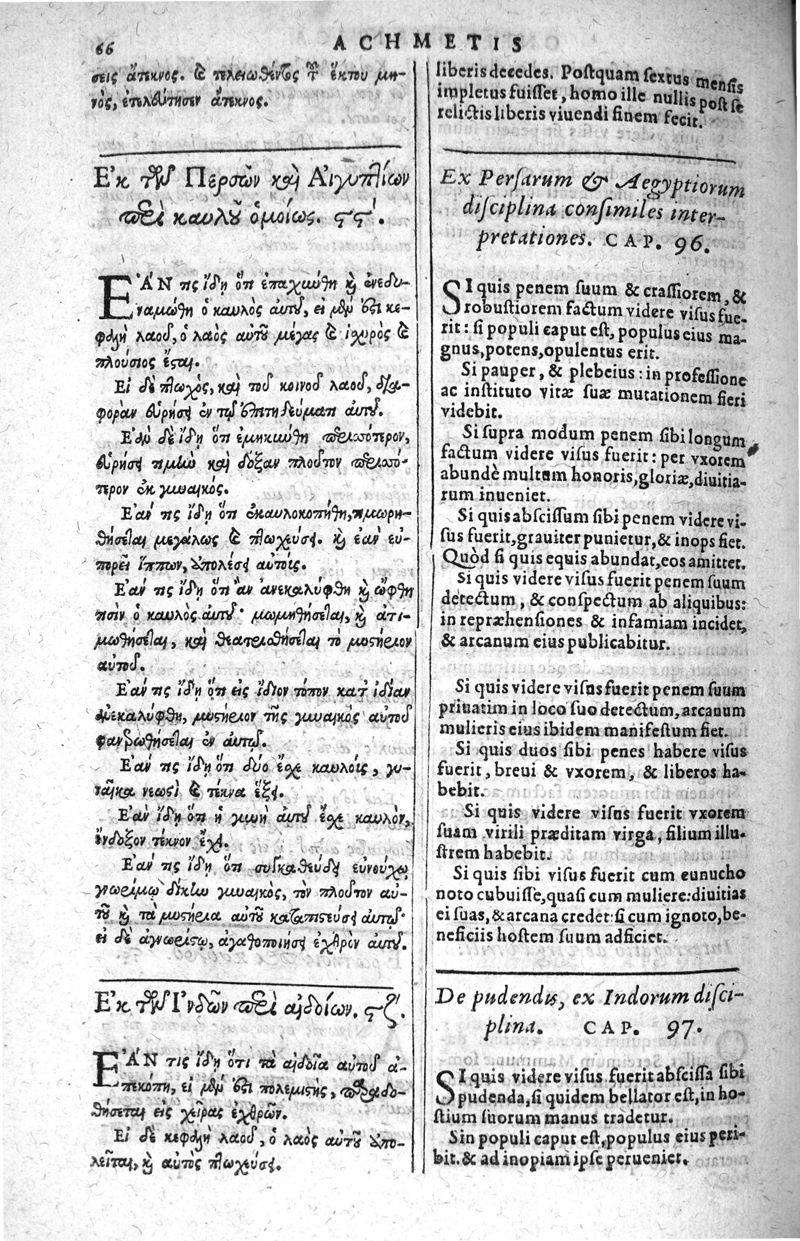 66
ACHMETIS
σεις ἄτεκνος. καὶ τελειωθέντος τοῦ ἕκτου μη-
νὸς, ἐτελεύτησεν ἄτεκνος.
Ἐκ τῶν Περσῶν καὶ Αἰγυπτίων
περὶ καυλοῦ ὁμοίως. ϛϛ΄.
ἘΆΝ τις ἴδῃ ὅτι ἐπαχύνθη καὶ ἐνεδυ-
ναμώθη ὁ καυλὸς αὐτοῦ, εἰ μὲν ἔστι κε-
φαλὴ λαοῦ, ὁ λαὸς αὐτοῦ μέγας καὶ ἰσχυρὸς καὶ
πλούσιος ἔσται.
Εἰ δὲ πτωχὸς, καὶ τοῦ κοινοῦ λαοῦ, διαφ-
φορὰν εὑρήσει ἐν τῷ ἐπιτηδεύματι αὐτοῦ.
Ἐὰν δὲ ἴδῃ ὅτι ἐμηκύνθη περισσότερον,
εὑρήσει τιμὴν καὶ δόξαν πλοῦτον περισσό-
τερον ἐκ γυναικός.
Ἐάν τις ἴδῃ ὅτι ἐκαυλοκοπήθη, τιμωρη-
θήσεται μεγάλως καὶ πτωχεύσει. καὶ ἐὰν εὐ-
πορεῖ ἵππων, ἀπολέσει αὐτούς.
Ἐάν τις ἴδῃ ὅτι ἀνεκαλύφθη καὶ ὤφθη
τισὶν ὁ καυλὸς αὐτοῦ· μωμηθήσεται, καὶ ἀτι-
μωθήσεται, καὶ θεατρισθήσεται τὸ μυστήριον
αὐτοῦ.
Ἐάν τις ἴδῃ ὅτι εἰς ἴδιον τόπον κατ' ἰδίαν
ἀνεκαλύφθη, μυστήριον τῆς γυναικὸς αὐτοῦ
φανερωθήσεται ἐν αὐτῷ.
Ἐάν τις ἴδῃ ὅτι δύο ἔχει καυλοὺς, γυ-
ναῖκα νεωστὶ καὶ τέκνα ἕξει.
Ἐὰν ἴδῃ ὅτι ἡ γυνὴ αὐτοῦ ἔχει καυλὸν,
ἔνδοξον τέκνον ἔχει.
Ἐάν τις ἴδῃ ὅτι συγκαθεύδει εὐνούχῳ
γνωρίμῳ δίκην γυναικὸς, τὸν πλοῦτον αὐ-
τοῦ καὶ τὰ μυστήρια αὐτοῦ καταπιστεύσει αὐτῷ·
εἰ δὲ ἀγνωρίστῳ, ἀγαθοποιήσει ἐχθρὸν αὐτοῦ.
Ἐκ τῶν Ἰνδῶν περὶ αἰδοίων. ϟζ΄.
ἘΆΝ τις ἴδῃ ὅτι τὰ αἰδοῖα αὐτοῦ ἀ-
πεκόπη, εἰ μὲν ἔστι πολεμιστὴς, παραδο-
θήσεται εἰς χεῖρας ἐχθρῶν.
Εἰ δὲ κεφαλὴ λαοῦ, ὁ λαὸς αὐτοῦ ἀπο-
λεῖται, καὶ αὐτὸς πτωχεύσει.
liberis decedes. Postquam sextus mensis
impletus fuisset, homo ille nullis post se
relictis liberis viuendi finem fecit.
Ex Persarum & Aegyptiorum
disciplina consimiles inter-
pretationes. CAP. 96.
SI quis penem suum & crassiorem, &
robustiorem factum videre visus fue-
rit: si populi caput est, populus eius ma-
gnus, potens, opulentus erit.
Si pauper, & plebeius: in professione
ac instituto vitæ suæ mutationem fieri
videbit.
Si supra modum penem sibi longum
factum videre visus fuerit: per vxorem
abundè multum honoris, gloriæ, diuitia-
rum inueniet.
Si quis abscissum sibi penem videre vi-
sus fuerit, grauiter punietur, & inops fiet.
Quòd si quis equis abundat, eos amittet.
Si quis videre visus fuerit penem suum
detectum, & conspectum ab aliquibus:
in repræhensiones & infamiam incidet,
& arcanum eius publicabitur.
Si quis videre visus fuerit penem suum
priuatim in loco suo detectum, arcanum
mulieris eius ibidem manifestum fiet.
Si quis duos sibi penes habere visus
fuerit, breui & vxorem, & liberos ha-
bebit.
Si quis videre visus fuerit vxorem
suam virili præditam virga, filium illu-
strem habebit.
Si quis sibi visus fuerit cum eunucho
noto cubuisse, quasi cum muliere: diuitias
ei suas, & arcana credet: si cum ignoto, be-
neficiis hostem suum adficiet.
De pudendis, ex Indorum disci-
plina. CAP. 97.
SI quis videre visus fuerit abscissa sibi
pudenda, si quidem bellator est, in ho-
stium suorum manus tradetur.
Sin populi caput est, populus eius peri-
bit. & ad inopiam ipse perueniet.